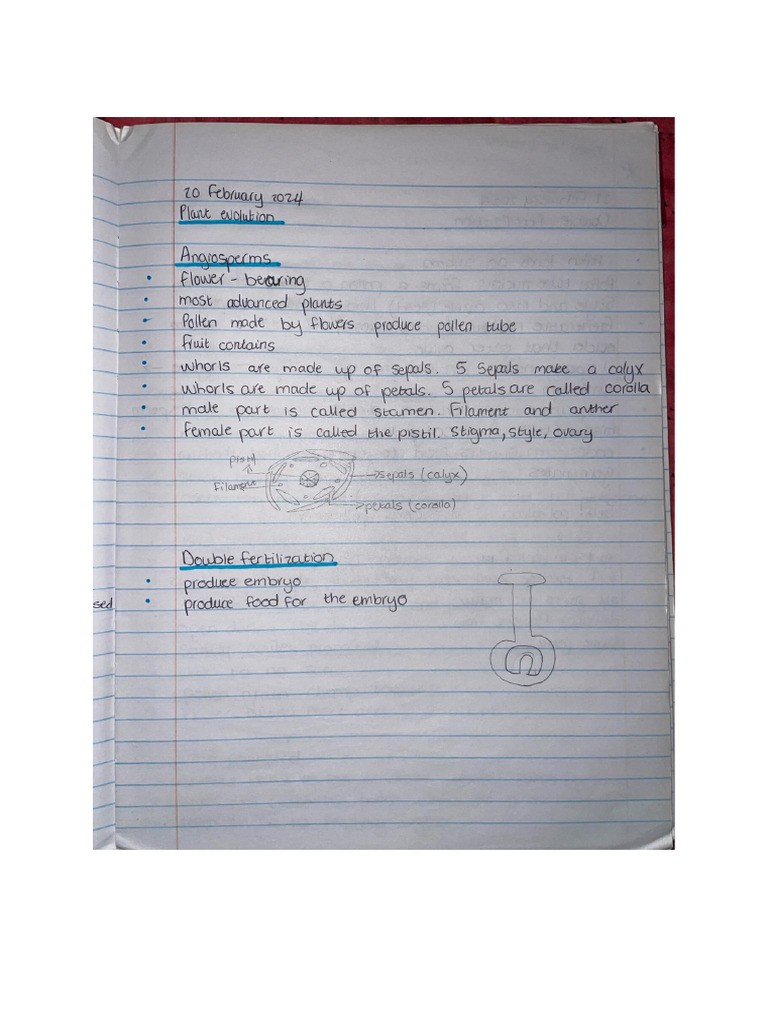 20 February 2024
Plant evolution
Angiosperms
• flower - bearing
• most advanced plants
• Pollen made by flowers produce pollen tube
• fruit contains
• whorls are made up of sepals. 5 sepals make a calyx
• whorls are made up of petals. 5 petals are called corolla
• male part is called stamen. Filament and anther
• female part is called the pistil. Stigma, style, ovary
pistil
filament
sepals (calyx)
petals (corolla)
Double fertilization
• produce embryo
sed
• produce food for the embryo